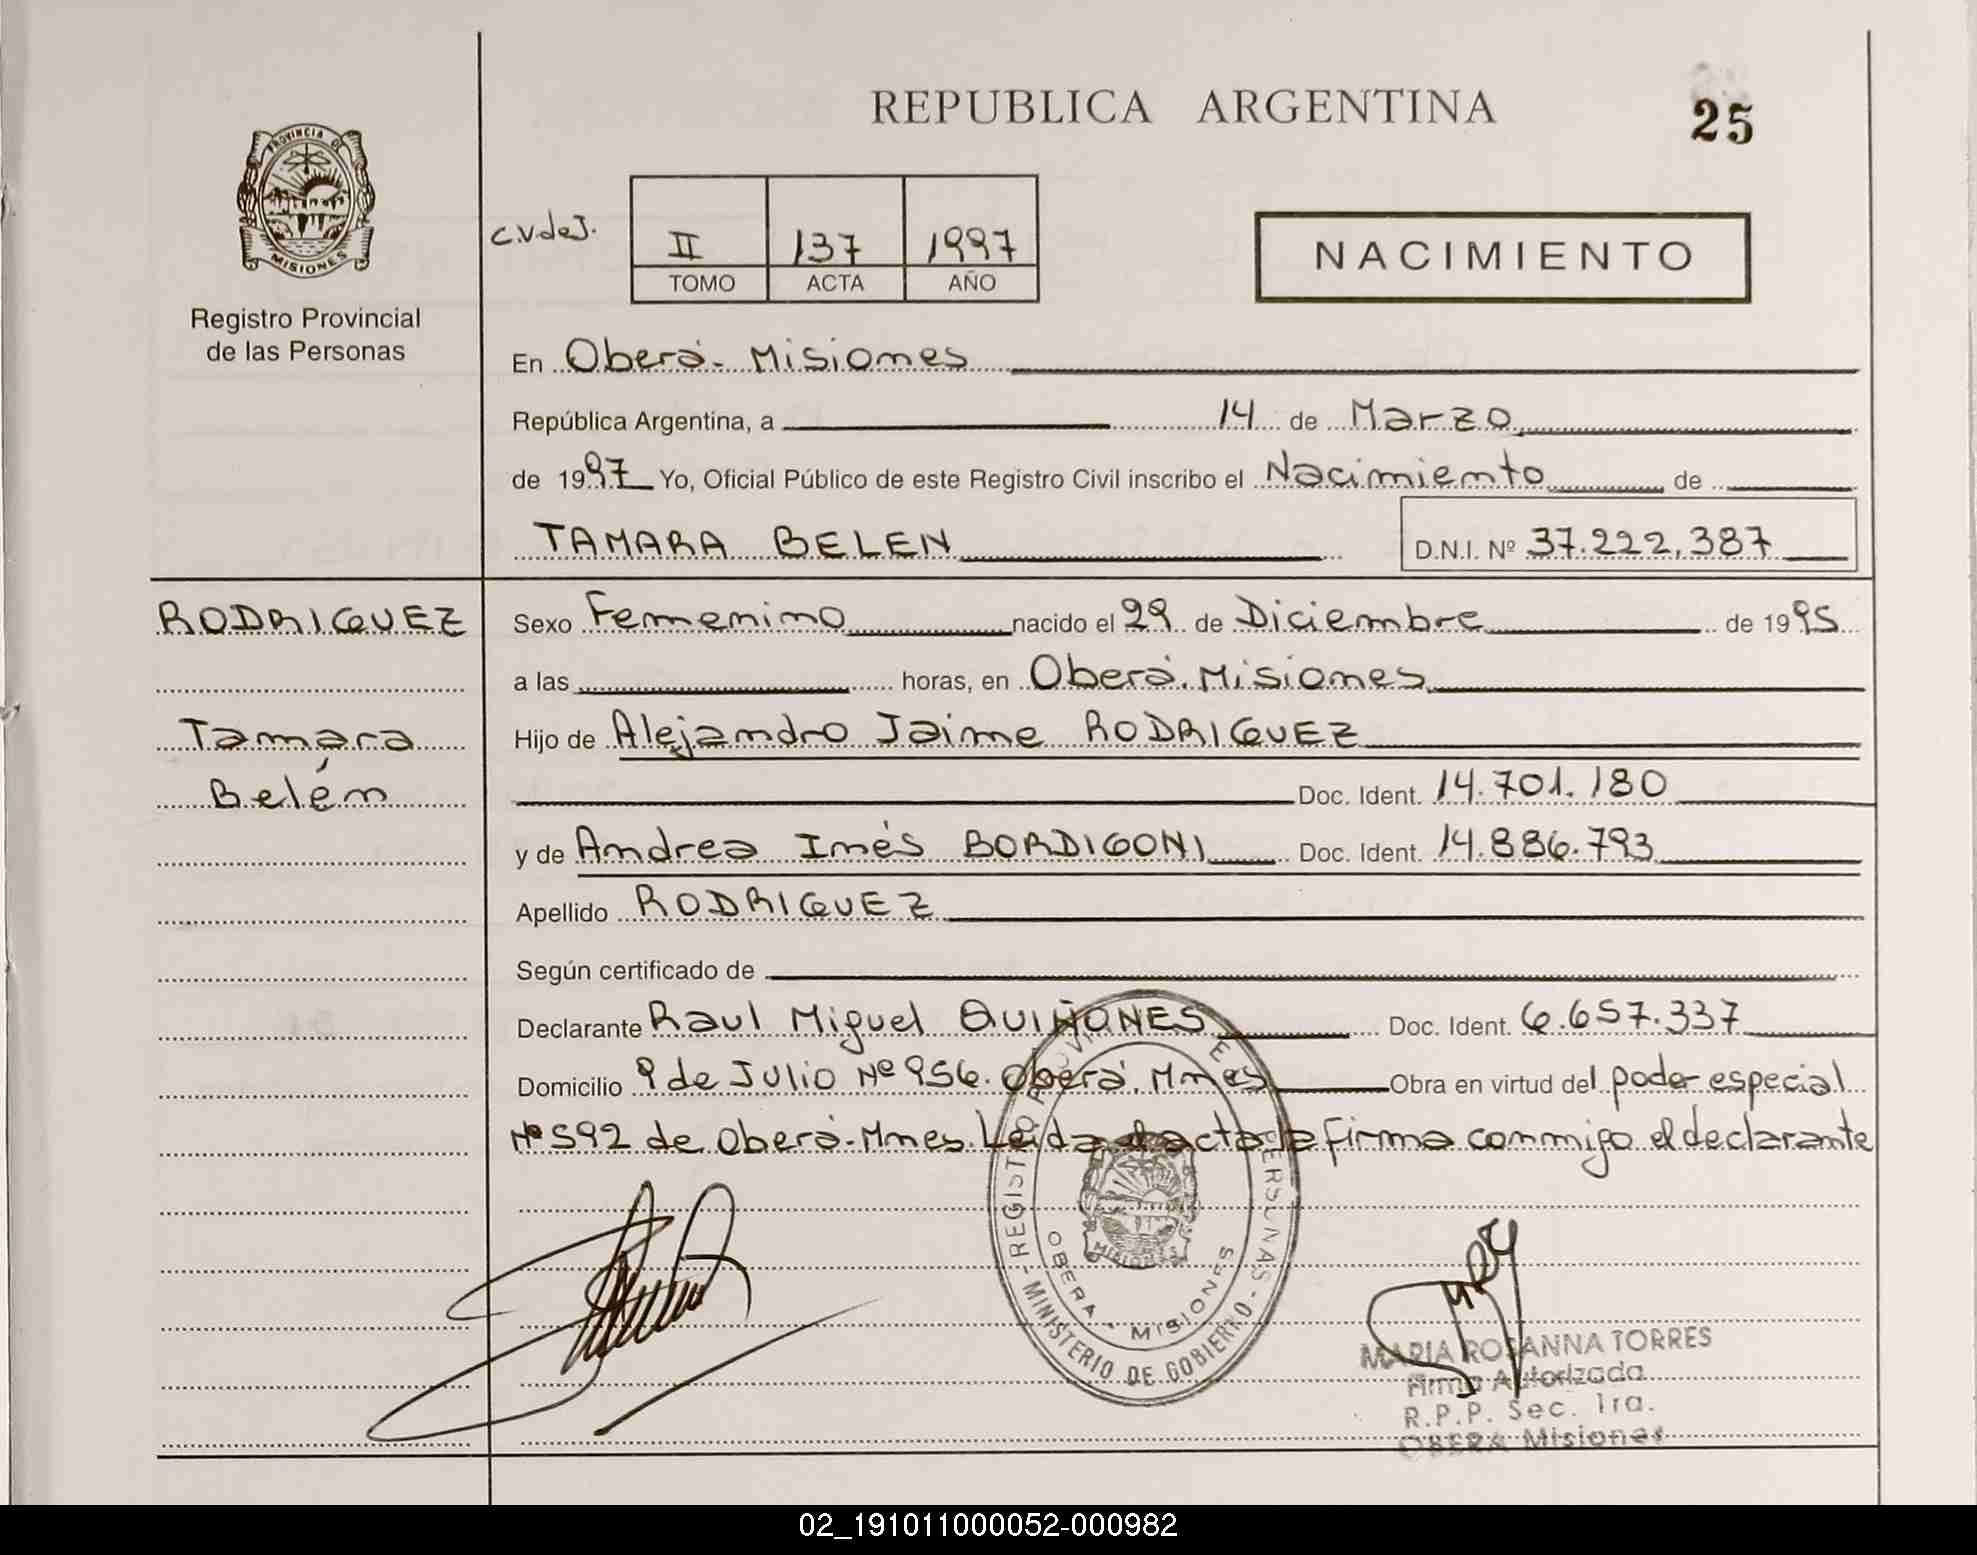 REPUBLICA ARGENTINA
25
PROVINCIA DE
MISIONES
Registro Provincial
de las Personas
C.V.deJ.
II 137 1997
TOMO ACTA AÑO
NACIMIENTO
En Oberá- Misiones
República Argentina, a 14 de Marzo
de 1997 Yo, Oficial Público de este Registro Civil inscribo el Nacimiento de
TAMARA BELEN D.N.I. Nº 37.222.387
RODRIGUEZ
Tamara
Belén
Sexo Femenino nacido el 29 de Diciembre de 1995
a las horas, en Oberá. Misiones
Hijo de Alejandro Jaime RODRIGUEZ
Doc. Ident. 14.701.180
y de Andrea Inés BORDIGONI Doc. Ident. 14.886.793
Apellido RODRIGUEZ
Según certificado de
Declarante Raul Miguel QUIÑONES Doc. Ident. 6.657.337
Domicilio 9 de Julio Nº 956. Oberá. Mnes Obra en virtud del poder especial
Nº 592 de Oberá-Mnes. Leida el acta la firma conmigo el declarante
REGISTRO PROVINCIAL DE PERSONAS - MINISTERIO DE GOBIERNO -
MISIONES
OBERA - MISIONES
MARIA ROSANNA TORRES
Firma Autorizada
R.P.P. Sec. 1ra.
OBERA Misiones
02_191011000052-000982